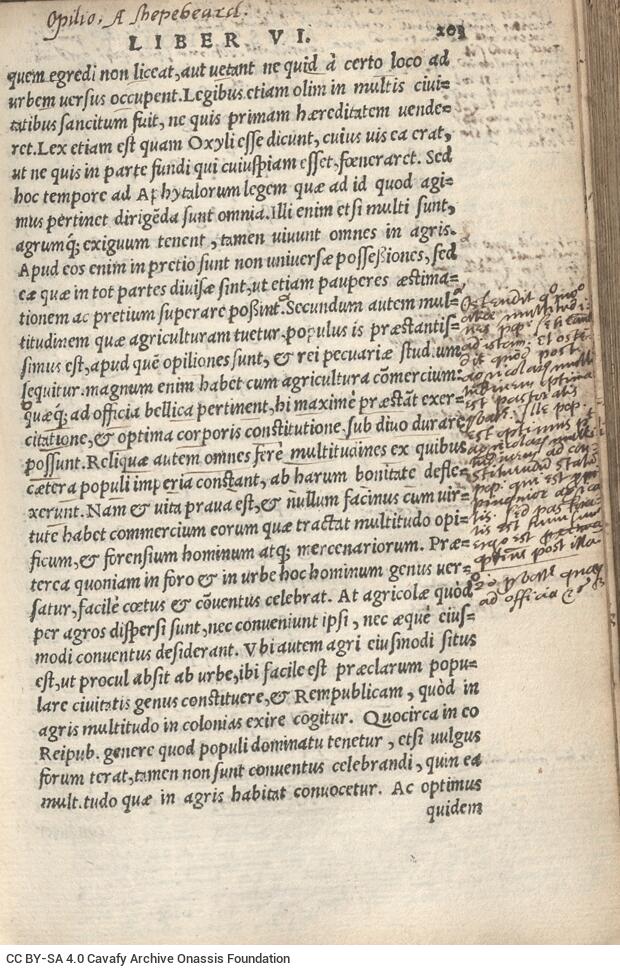 Opilio. A shepebeard.
LIBER VI. 203
quem egredi non liceat, aut uetant ne quid à certo loco ad
urbem uersus occupent. Legibus etiam olim in multis ciui=
tatibus sancitum fuit, ne quis primam hæreditatem uende=
ret. Lex etiam est quam Oxyli esse dicunt, cuius uis ea erat,
ut ne quis in parte fundi qui cuiuspiam esset, fœneraret. Sed
hoc tempore ad Aphytalorum legem quæ ad id quod agi=
mus pertinet dirigẽda sunt omnia. Illi enim etsi multi sunt,
agrumq; exiguum tenent, tamen uiuunt omnes in agris.
Apud eos enim in pretio sunt non uniuersæ possessiones, sed
eæ quæ in tot partes diuisæ sint, ut etiam pauperes æstima=
tionem ac pretium superare possint. Secundum autem mul=
titudinem quæ agriculturam tuetur, populus is præstantis=
simus est, apud quẽ opiliones sunt, & rei pecuariæ stud.um
sequitur. magnum enim habet cum agricultura cõmercium:
quæq; ad officia bellica pertinent, hi maximè præstãt exer=
citatione, & optima corporis constitutione. sub diuo durare
possunt. Reliquæ autem omnes ferè multitudines ex quibus
cætera populi imperia constant, ab harum bonitate defle=
xerunt. Nam & uita praua est, & nullum facinus cum uir=
tute habet commercium eorum quæ tractat multitudo opi=
ficum, & forensium hominum atq; mercenariorum. Præ=
terea quoniam in foro & in urbe hoc hominum genus uer=
satur, facilè cœtus & cõuentus celebrat. At agricolæ quòd
per agros dispersi sunt, nec conueniunt ipsi, nec æquè eius=
modi conuentus desiderant. Vbi autem agri eiusmodi situs
est, ut procul absit ab urbe, ibi facile est præclarum popu=
lare ciuitatis genus constituere, & Rempublicam, quòd in
agris multitudo in colonias exire cogitur. Quocirca in eo
Reipub. genere quod populi dominatu tenetur, etsi uulgus
forum terat, tamen non sunt conuentus celebrandi, quin ea
mult.tudo quæ in agris habitat conuocetur. Ac optimus
quidem
ostendit
dit quod post
agricolarum
optima
est
est optimus
ad con
pop. qui est
est
post illa
ad officia
CC BY-SA 4.0 Cavafy Archive Onassis Foundation